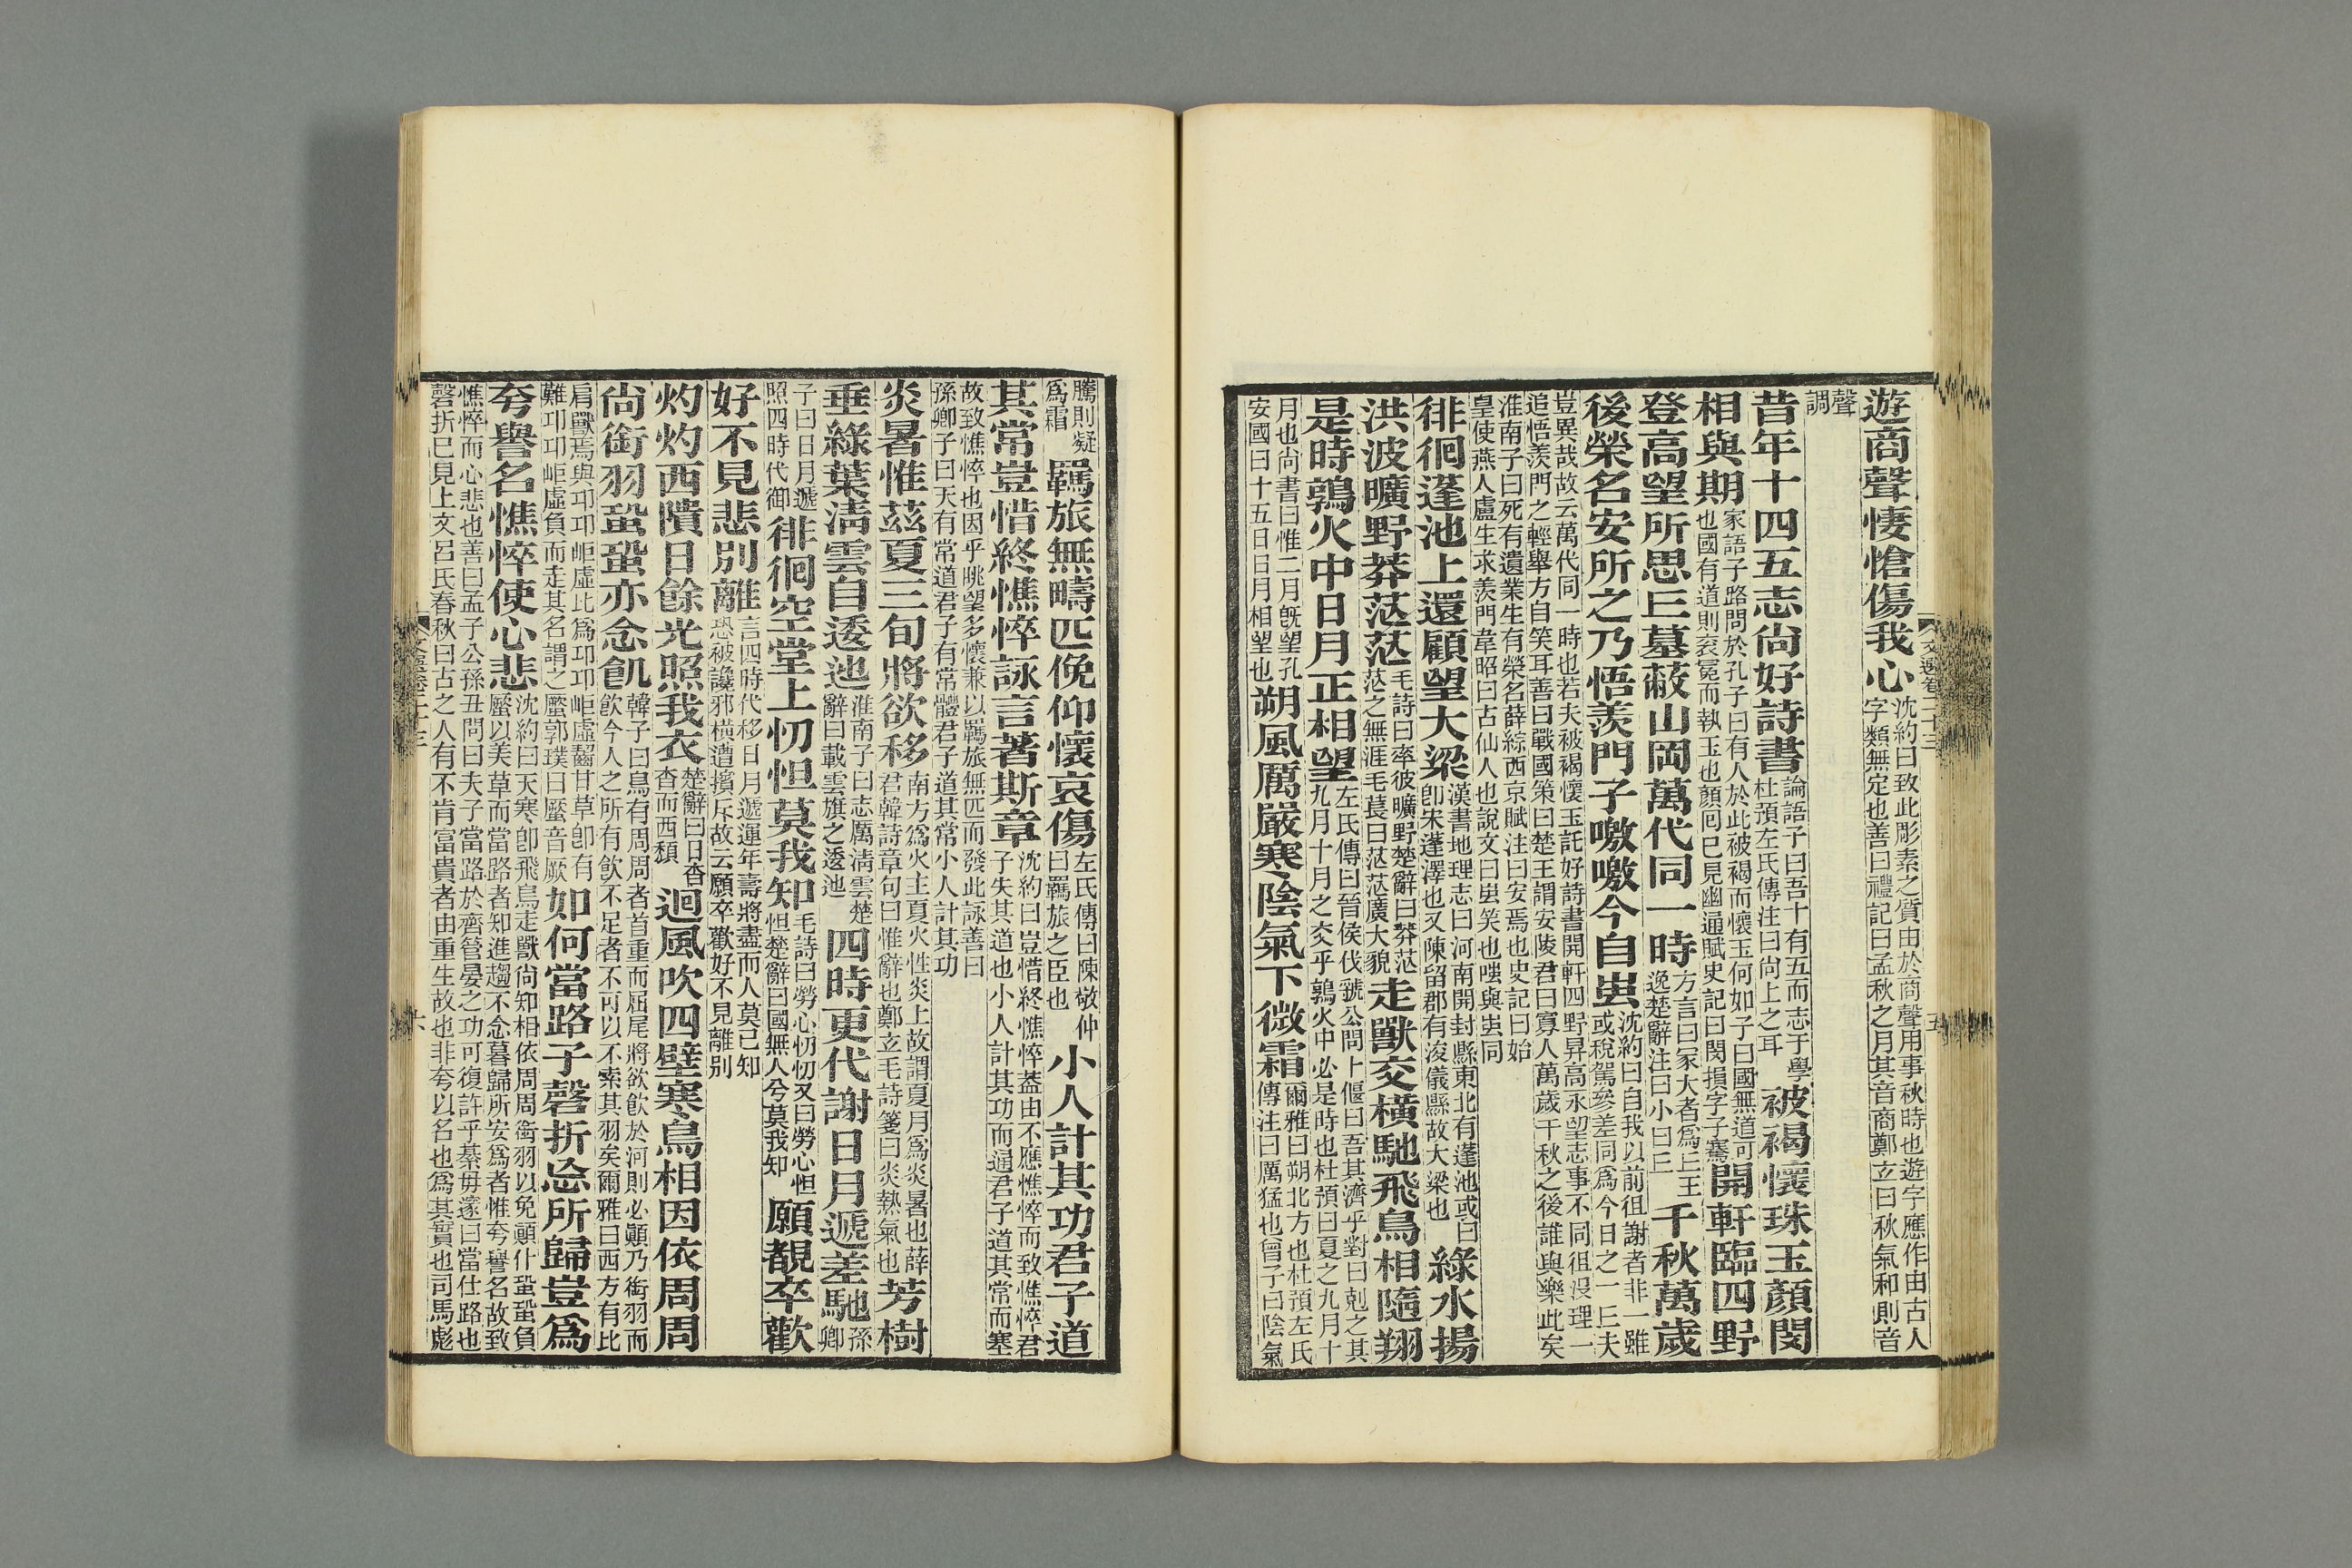 文選卷二十三
五
遊商聲悽愴傷我心沈約曰致此彫素之質由於商聲用事秋時也遊字應作由古人字類無定也善曰禮記曰孟秋之月其音商鄭玄曰秋氣和則音
聲調
昔年十四五志尚好詩書論語子曰吾十有五而志于學杜預左氏傳注曰尚上之耳被褐懷珠玉顏閔
相與期家語子路問於孔子曰有人於此被褐而懷玉何如子曰國無道可也國有道則衮冕而執玉也顏回已見幽通賦史記曰閔損字子騫開軒臨四野
登高望所思丘墓蔽山岡萬代同一時方言曰冢大者爲丘王逸楚辭注曰小曰丘千秋萬歲
後榮名安所之乃悟羨門子噭噭今自蚩沈約曰自我以前徂謝者非一雖或稅駕參差同爲今日之一丘夫
豈異哉故云萬代同一時也若夫被褐懷玉託好詩書開軒四野昇高永望志事不同徂沒理一追悟羨門之輕舉方自笑耳善曰戰國策曰楚王謂安陵君曰寡人萬歲千秋之後誰與樂此矣
淮南子曰死有遺業生有榮名薛綜西京賦注曰安焉也史記曰始皇使燕人盧生求羨門韋昭曰古仙人也說文曰蚩笑也嗤與蚩同
徘徊蓬池上還顧望大梁漢書地理志曰河南開封縣東北有蓬池或曰卽宋蓬澤也又陳留郡有浚儀縣故大梁也綠水揚
洪波曠野莽茫茫毛詩曰率彼曠野楚辭曰莽茫茫之無涯毛萇曰茫茫廣大貌走獸交橫馳飛鳥相隨翔
是時鶉火中日月正相望左氏傳曰晉侯伐虢公問卜偃曰吾其濟乎對曰剋之其九月十月之交乎鶉火中必是時也杜預曰夏之九月十
月也尚書曰惟二月旣望孔安國曰十五日日月相望也朔風厲嚴寒陰氣下微霜爾雅曰朔北方也杜預左氏傳注曰厲猛也曾子曰陰氣
騰則凝爲霜羈旅無疇匹俛仰懷哀傷左氏傳曰陳敬仲曰羈旅之臣也小人計其功君子道
其常豈惜終憔悴詠言著斯章沈約曰豈惜終憔悴蓋由不應憔悴而致憔悴君子失其道也小人計其功而通君子道其常而塞
故致憔悴也因乎眺望多懷兼以羈旅無匹而發此詠善曰孫卿子曰天有常道君子有常體君子道其常小人計其功
炎暑惟茲夏三旬將欲移南方爲火主夏火性炎上故謂夏月爲炎暑也薛君韓詩章句曰惟辭也鄭玄毛詩箋曰炎熱氣也芳樹
垂綠葉淸雲自逶迆淮南子曰志厲淸雲楚辭曰載雲旗之逶迆四時更代謝日月遞差馳孫卿
子曰日月遞照四時代御徘徊空堂上忉怛莫我知毛詩曰勞心忉忉又曰勞心怛怛楚辭曰國無人兮莫我知願覩卒歡
好不見悲別離言四時代移日月遞運年壽將盡而人莫己知恐被讒邪橫遭擯斥故云願卒歡好不見離別
灼灼西隤日餘光照我衣楚辭曰日杳杳而西頹迴風吹四壁寒鳥相因依周周
尚銜羽蛩蛩亦念飢韓子曰鳥有周周者首重而屈尾將欲飮於河則必顚乃銜羽而飮今人之所有飮不足者不可以不索其羽矣爾雅曰西方有比
肩獸焉與邛邛岠虛比爲邛邛岠虛齧甘草卽有難邛邛岠虛負而走其名謂之蟨郭璞曰蟨音厥如何當路子磬折忘所歸豈爲
夸譽名憔悴使心悲沈約曰天寒卽飛鳥走獸尚知相依周周銜羽以免顚仆蛩蛩負蟨以美草而當路者知進趨不念暮歸所安爲者惟夸譽名故致
憔悴而心悲也善曰孟子公孫丑問曰夫子當路於齊管晏之功可復許乎綦毋邃曰當仕路也磬折已見上文呂氏春秋曰古之人有不肯富貴者由重生故也非夸以名也爲其實也司馬彪